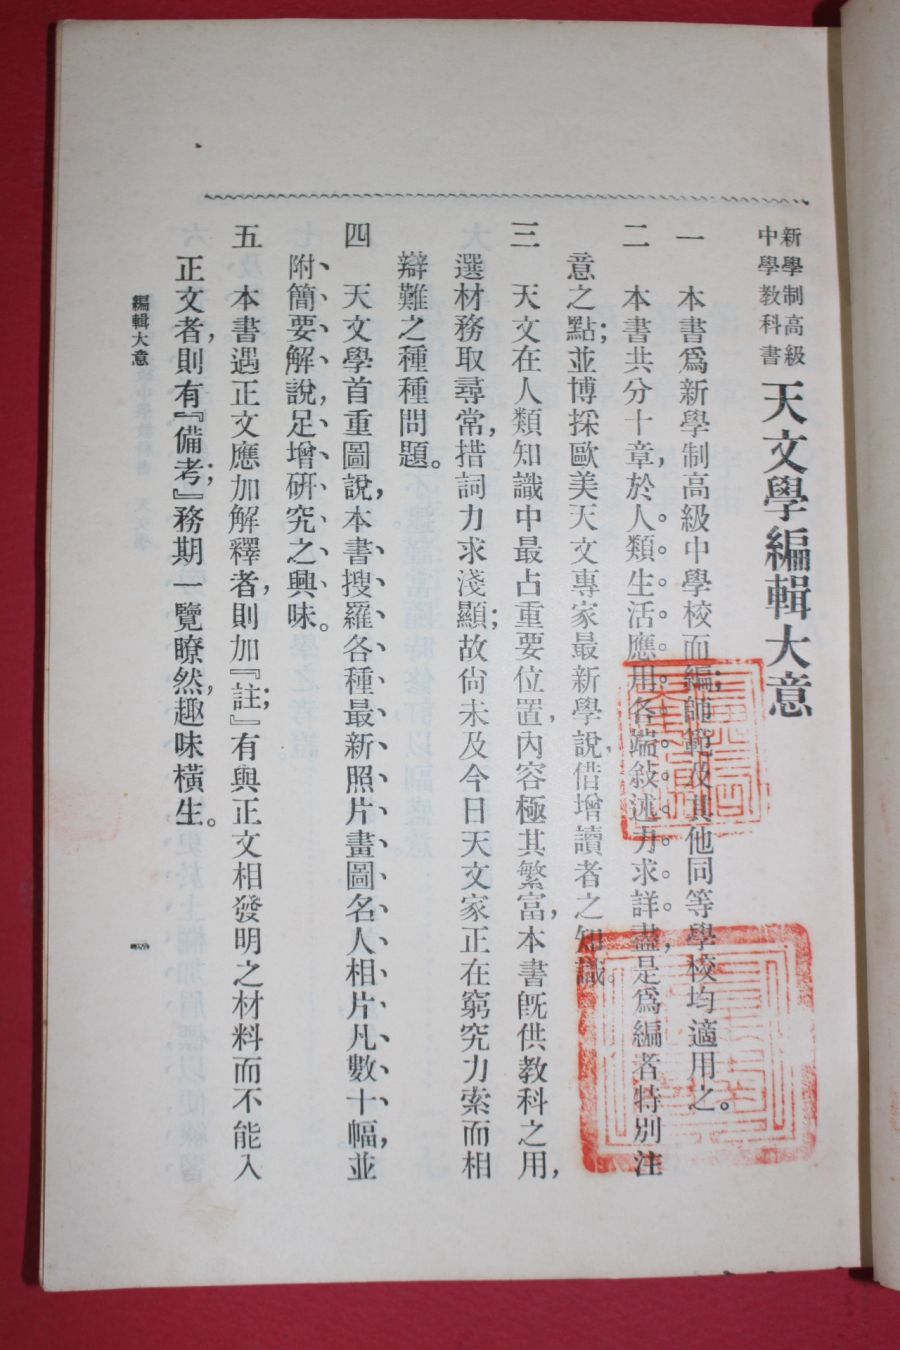 新學制高級
中學教科書
天文學編輯大意
一 本書爲新學制高級中學校而編;師範及其他同等學校均適用之。
二 本書共分十章,於人類生活應用各端敍述力求詳盡,是爲編者特別注
意之點;並博採歐美天文專家最新學說,借增讀者之知識。
三 天文在人類知識中最占重要位置,內容極其繁富,本書旣供教科之用,
選材務取尋常,措詞力求淺顯;故尙未及今日天文家正在窮究力索而相
辯難之種種問題。
四 天文學首重圖說,本書搜羅各種最新照片畫圖名人相片凡數十幅,並
附簡要解說,足增研究之興味。
五 本書遇正文應加解釋者,則加『註』;有與正文相發明之材料而不能入
正文者,則有『備考』;務期一覽瞭然,趣味橫生。
編輯大意
一